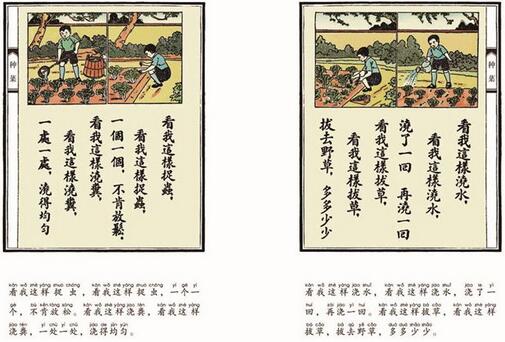 种菜
看我這樣澆水，
看我這樣澆水，
澆了一回 再澆一回
看我這樣拔草，
看我這樣拔草，
拔去野草，多多少少
kàn wǒ zhè yàng jiāo shuǐ kàn wǒ zhè yàng jiāo shuǐ jiāo le yì
看我这样浇水，看我这样浇水，浇了一
huí zài jiāo yì huí kàn wǒ zhè yàng bá cǎo kàn wǒ zhè yàng
回，再浇一回。看我这样拔草，看我这样
bá cǎo bá qù yě cǎo duō duō shǎo shǎo
拔草，拔去野草，多多少少。
种菜
看我這樣捉蟲，
看我這樣捉蟲，
一個一個，不肯放鬆。
看我這樣澆糞，
看我這樣澆糞，
一處一處，澆得均勻
kàn wǒ zhè yàng zhuō chóng kàn wǒ zhè yàng zhuō chóng yí gè yí
看我这样捉虫，看我这样捉虫，一个一
gè bù kěn fàng sōng kàn wǒ zhè yàng jiāo fèn kàn wǒ zhè yàng
个，不肯放松。看我这样浇粪，看我这样
jiāo fèn yí chù yí chù jiāo de jūn yún
浇粪，一处一处，浇得均匀。